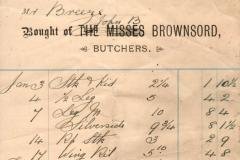 Mr Breeze
John B
Bought of THE MISSES BROWNSORD,
BUTCHERS.
Jan 3 Stk & Kid 2¼ 1 10
4 ½ Leg 5 4 2
7 Leg M 10 8 4
Silverside 9¾ 8 1½
14 Rp Stk 3 2 9
17 Wing Rib 5 10